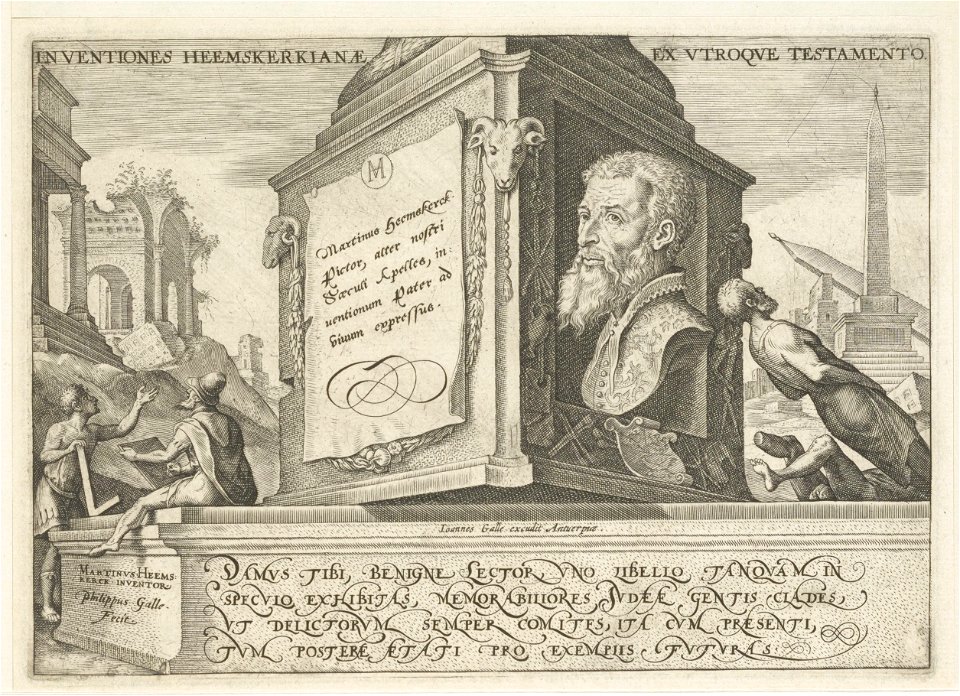 INVENTIONES HEEMSKERKIANÆ EX VTROQVE TESTAMENTO.
M
Martinus Heemskerck
Pictor, alter nostri
Sæculi Apelles, in:
uentionum Pater ad
viuum expressus.
Ioannes Galle excudit Antuerpiæ.
MARTINVS HEEMS
KERCK INVENTOR
Philippus Galle.
Fecit
DAMVS TIBI, BENIGNE LECTOR, VNO LIBELLO TANQVAM IN
SPECVLO EXHIBITAS, MEMORABILIORES IVDEÆ GENTIS CLADES,
VT DELICTORVM SEMPER COMITES, ITA CVM PRÆSENTI,
TVM POSTERÆ ÆTATI PRO EXEMPLIS FVTVRAS.